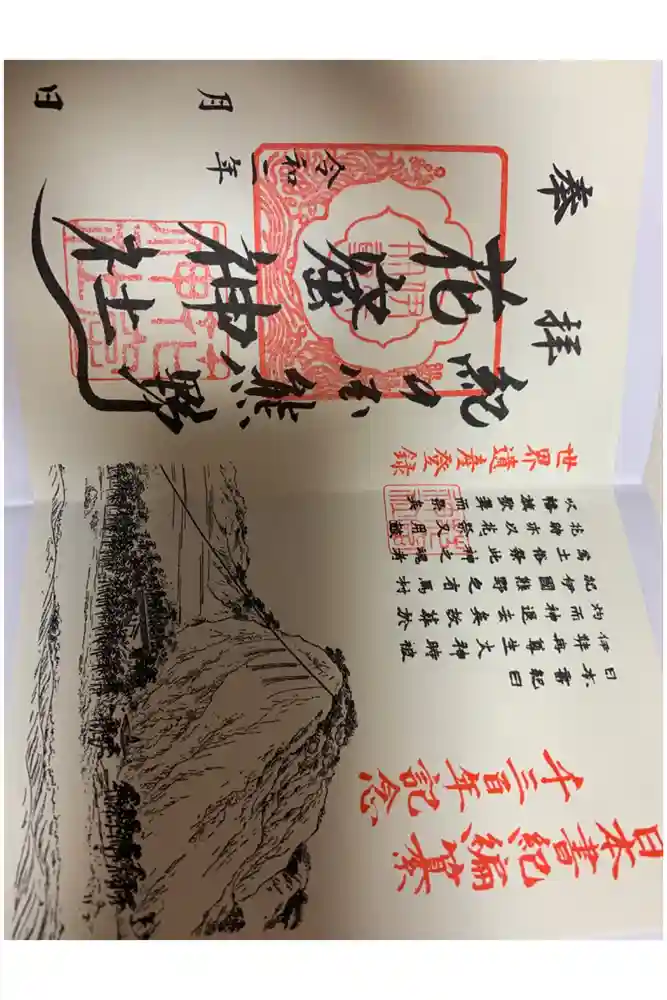 日本書紀編纂
千三百年記念
日本書紀曰
伊弉冉尊生火神時被
灼而神退去矣故葬於
紀伊國熊野之有馬村
焉土俗祭此神之魂者
花時亦以花祭又用鼓
吹幡旗歌舞而祭矣
世界遺産登録
奉拝
紀の国熊野
花窟神社
令和二年
月
日